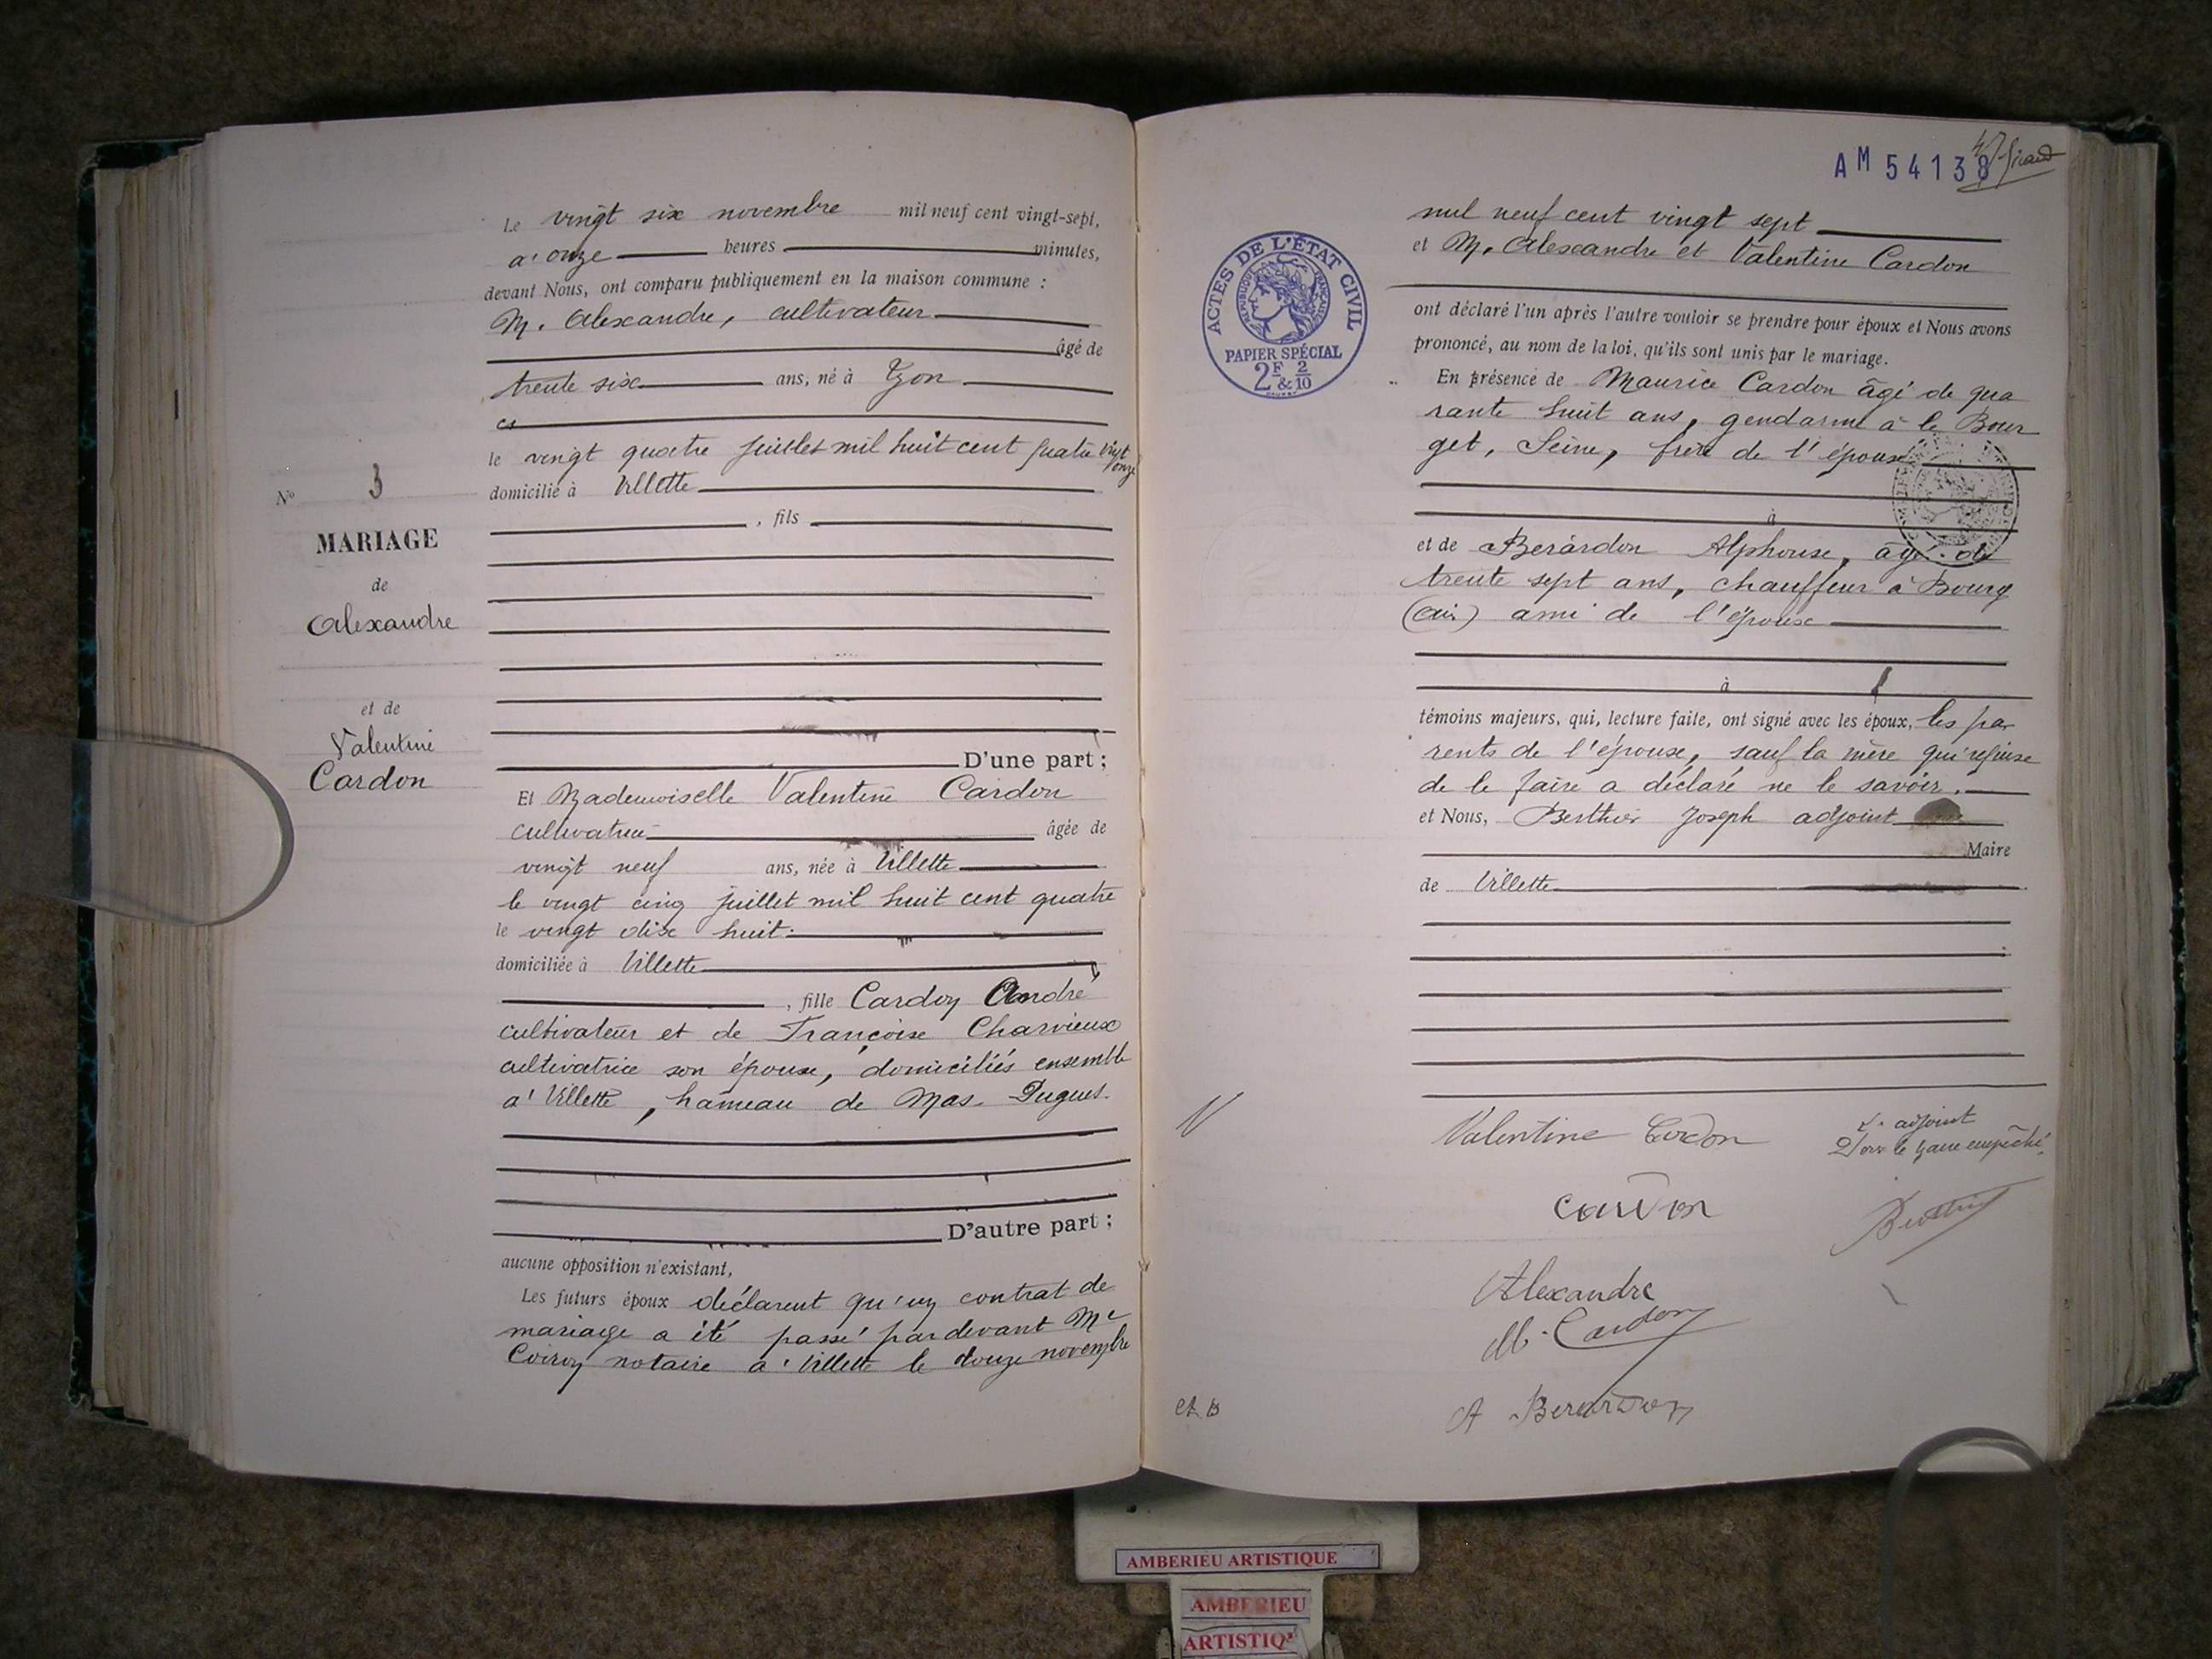 Le vingt six novembre mil neuf cent vingt-sept,
a' onze heures minutes,
devant Nous, ont comparu publiquement en la maison commune :
M. Alexandre, cultivateur
âgé de
trente six ans, né à Lyon
le vingt quatre juillet mil huit cent quatre vingt
onze
domicilié à Villette
, fils
D'une part ;
Et Mademoiselle Valentine Cardon
cultivatrice âgée de
vingt neuf ans, née à Villette
le vingt cinq juillet mil huit cent quatre
le vingt dix huit.
domiciliée à Villette
, fille Cardon André
cultivateur et de Françoise Charvieux
cultivatrice son épouse, domiciliés ensemble
a' Villette, hameau de Mas-
D'autre part ;
aucune opposition n'existant,
Les futurs époux déclarent qu'un contrat de
mariage a été passé par devant Me
Coiron notaire a' Villette le douze novembre
No 3
MARIAGE
de
Alexandre
et de
Valentine
Cardon
AM 54138
ACTES DE L'ÉTAT CIVIL
RÉPUBLIQUE FRANÇAISE
PAPIER SPÉCIAL
2F 2
& 10
mil neuf cent vingt sept
et M. Alexandre et Valentine Cardon
ont déclaré l'un après l'autre vouloir se prendre pour époux et Nous avons
prononcé, au nom de la loi, qu'ils sont unis par le mariage.
En présence de Maurice Cardon âgé de qua
rante huit ans, gendarme à le Bour
get, Seine, frère de l'épouse
à
et de Berardon Alphonse, âgé de
trente sept ans, chauffeur à Bourg
(Ain) ami de l'épouse
à
témoins majeurs, qui, lecture faite, ont signé avec les époux, les pa
rents de l'épouse, sauf la mère qui refuse
de le faire a déclaré ne le savoir.
et Nous, Berthier Joseph adjoint
Maire
de Villette
Valentine Cardon
L'adjoint
Pour le Maire empêché,
Cardon
Berthier
Alexandre
M. Cardon
A Berardon
AMBERIEU ARTISTIQUE
AMBERIEU
ARTISTIQ